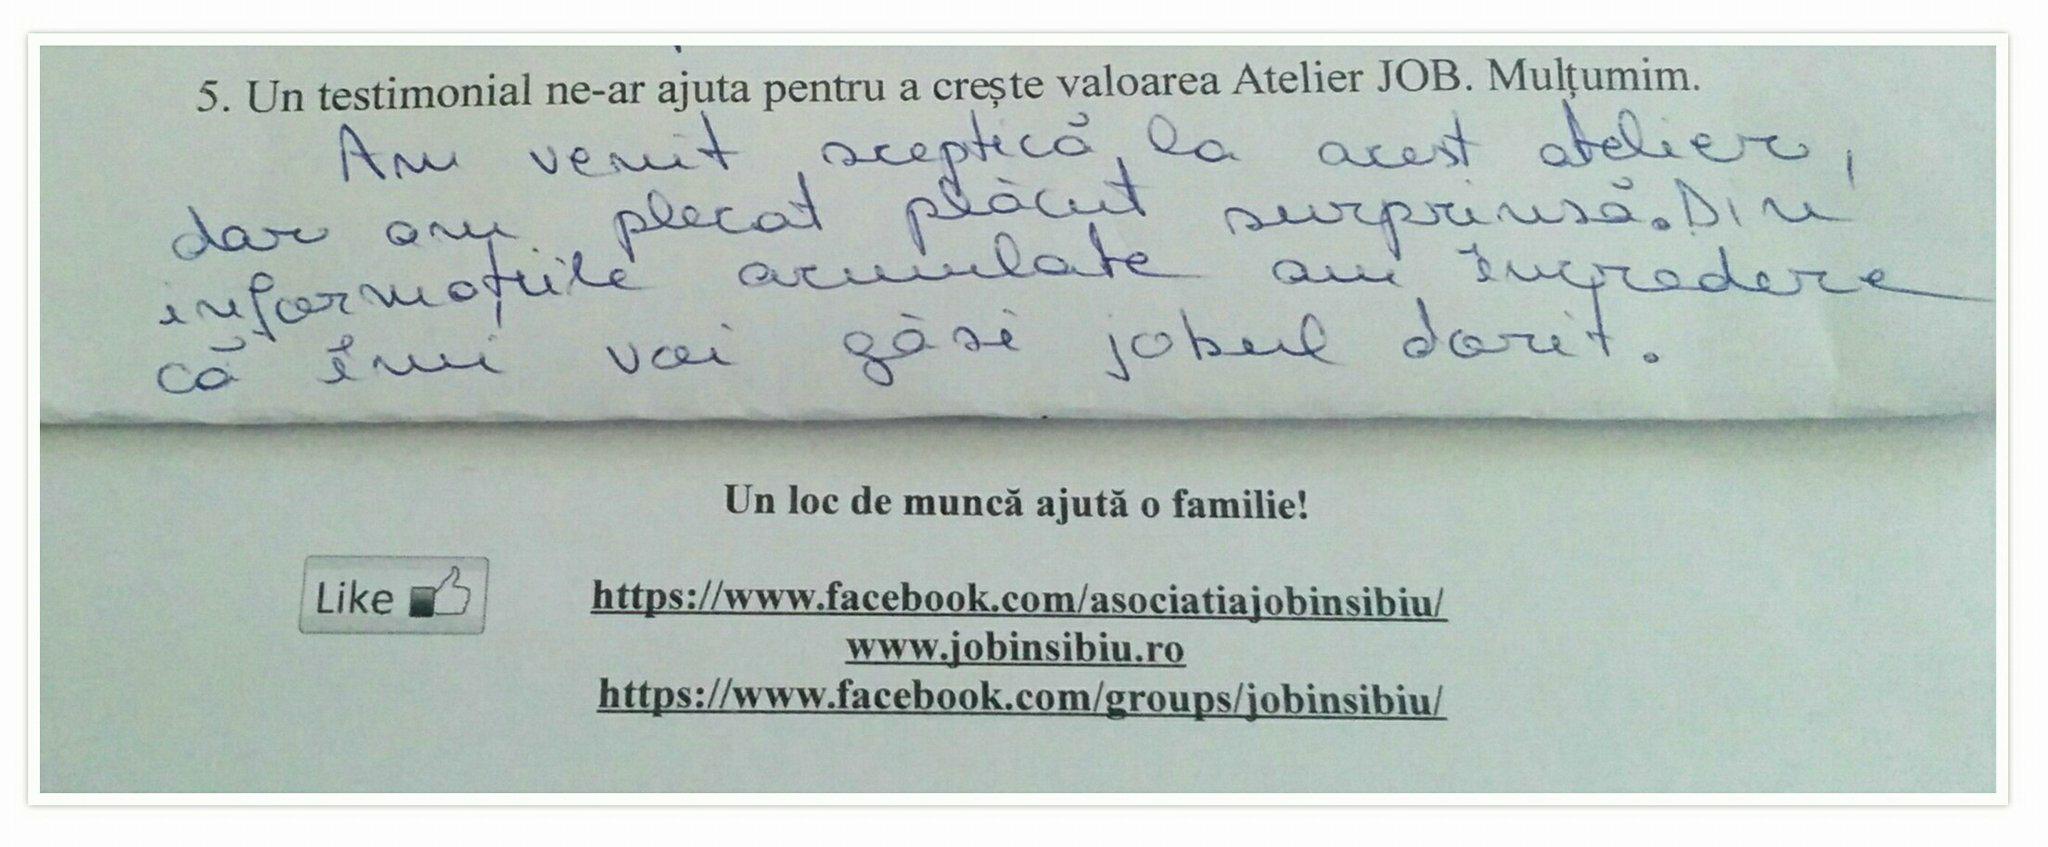 5. Un testimonial ne-ar ajuta pentru a crește valoarea Atelier JOB. Mulțumim.
Am venit sceptică, la acest atelier,
dar am plecat plăcut surprinsă. Din
informațiile acumulate am încredere
că îmi voi găsi jobul dorit.
Un loc de muncă ajută o familie!
Like
https://www.facebook.com/asociatiajobinsibiu/
www.jobinsibiu.ro
https://www.facebook.com/groups/jobinsibiu/